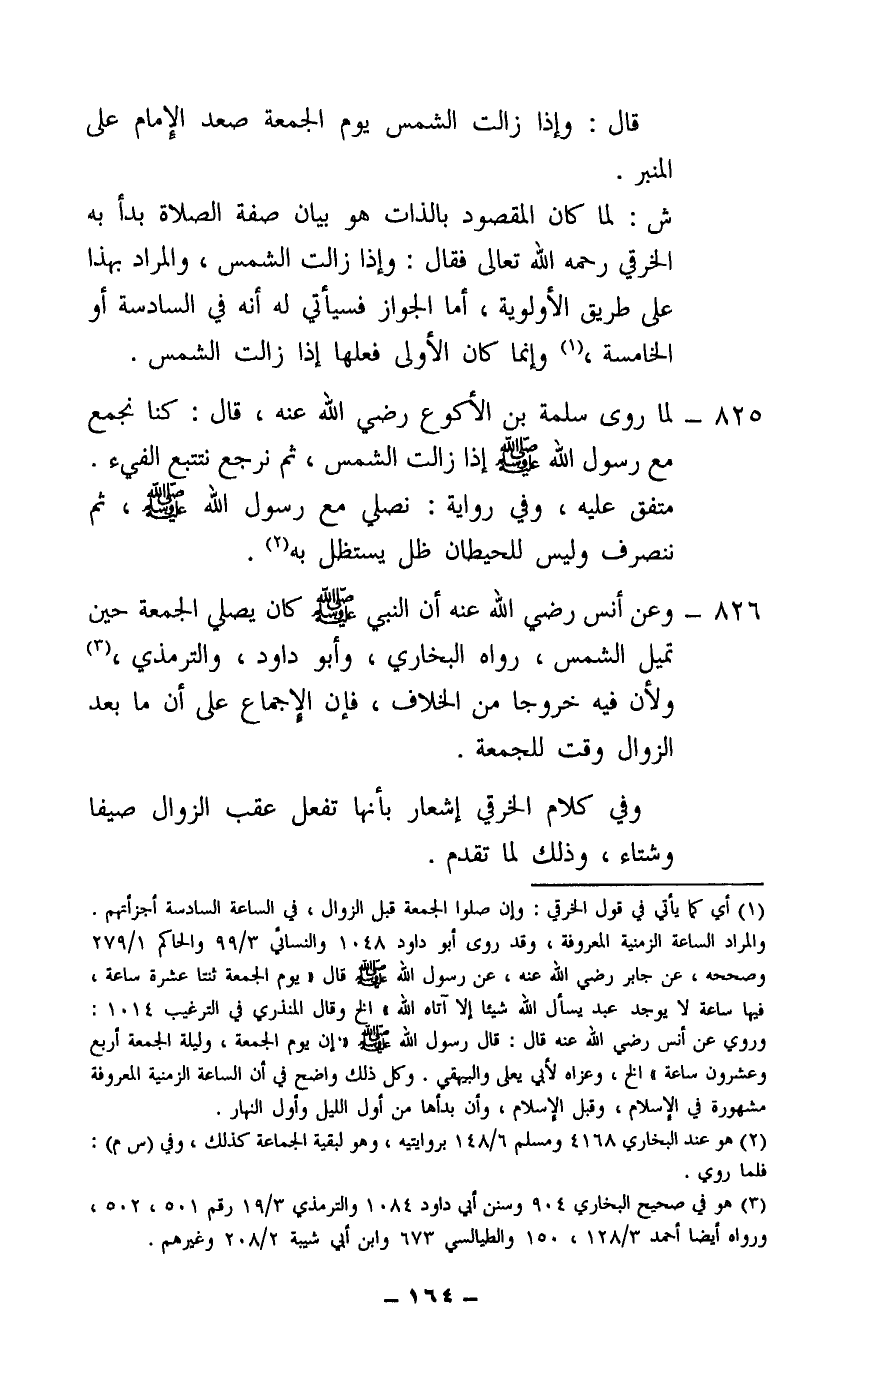 قال : وإذا زالت الشمس يوم الجمعة صعد الإمام على
المنبر .
ش : لما كان المقصود بالذات هو بيان صفة الصلاة بدأ به
الخرقي رحمه الله تعالى فقال : وإذا زالت الشمس ، والمراد بهذا
على طريق الأولوية ، أما الجواز فسيأتي له أنه في السادسة أو
الخامسة ،(١) وإنما كان الأولى فعلها إذا زالت الشمس .
٨٢٥ – لما روى سلمة بن الأكوع رضي الله عنه ، قال : كنا نجمع
مع رسول الله ﷺ إذا زالت الشمس ، ثم نرجع نتتبع الفيء .
متفق عليه ، وفي رواية : نصلي مع رسول الله ﷺ ، ثم
ننصرف وليس للحيطان ظل يستظل به(٢) .
٨٢٦ – وعن أنس رضي الله عنه أن النبي ﷺ كان يصلي الجمعة حين
تميل الشمس ، رواه البخاري ، وأبو داود ، والترمذي ،(٣)
ولأن فيه خروجا من الخلاف ، فإن الإجماع على أن ما بعد
الزوال وقت للجمعة .
وفي كلام الخرقي إشعار بأنها تفعل عقب الزوال صيفا
وشتاء ، وذلك لما تقدم .
(١) أي كما يأتي في قول الخرقي : وإن صلوا الجمعة قبل الزوال ، في الساعة السادسة أجزأتهم .
والمراد الساعة الزمنية المعروفة ، وقد روى أبو داود ١٠٤٨ والنسائي ٩٩/٣ والحاكم ٢٧٩/١
وصححه ، عن جابر رضي الله عنه ، عن رسول الله ﷺ قال « يوم الجمعة ثنتا عشرة ساعة ،
فيها ساعة لا يوجد عبد يسأل الله شيئا إلا آتاه الله » الخ وقال المنذري في الترغيب ١٠١٤ :
وروي عن أنس رضي الله عنه قال : قال رسول الله ﷺ « إن يوم الجمعة ، وليلة الجمعة أربع
وعشرون ساعة » الخ ، وعزاه لأبي يعلى والبيهقي . وكل ذلك واضح في أن الساعة الزمنية المعروفة
مشهورة في الإسلام ، وقبل الإسلام ، وأن بدأها من أول الليل وأول النهار .
(٢) هو عند البخاري ٤١٦٨ ومسلم ١٤٨/٦ بروايتيه ، وهو لبقية الجماعة كذلك ، وفي (س م) :
فلما روي .
(٣) هو في صحيح البخاري ٩٠٤ وسنن أبي داود ١٠٨٤ والترمذي ١٩/٣ رقم ٥٠١ ، ٥٠٢ ،
ورواه أيضا أحمد ١٢٨/٣ ، ١٥٠ والطيالسي ٦٧٣ وابن أبي شيبة ٢٠٨/٢ وغيرهم .
– ١٦٤ –